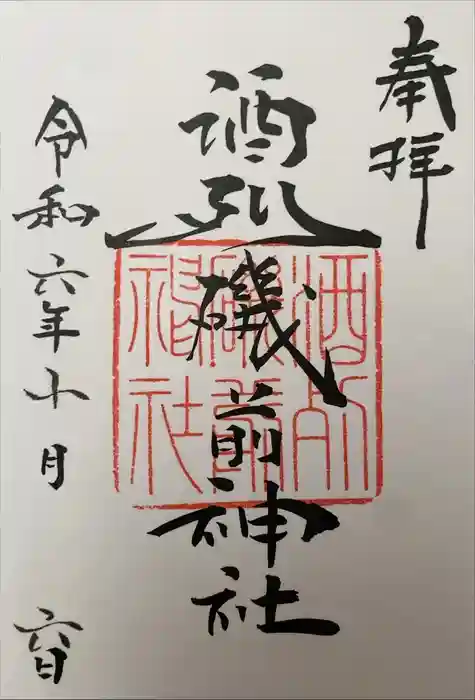 奉拝
酒列磯前神社
酒列
磯前
神社
令和六年十月六日